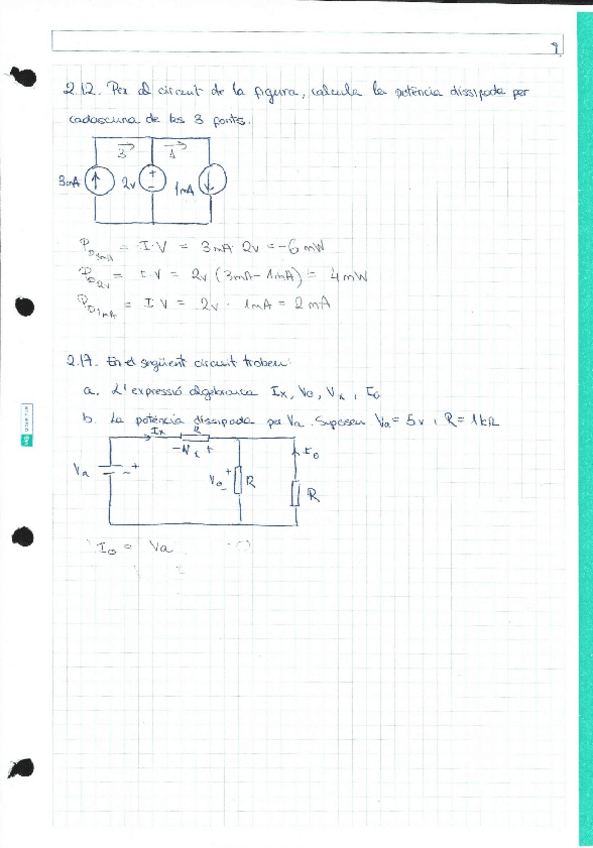 9
2.12. Per el circuit de la figura, calcula la potència dissipada per
cadascuna de les 3 fonts.
3 1
3mA 2v + - 1mA
P_D3mA = I·V = 3mA·2v = -6mW
P_D2v = I·V = 2v (3mA-1mA) = 4mW
P_D1mA = I·V = 2v · 1mA = 2mA
2.17. En el següent circuit trobeu:
a. L'expressió algebraica Ix, Vo, Vx, Io
b. La potència dissipada per Va. Suposem Va = 5v i R = 1kΩ
Ix R
- Vx + Io
Va + Vo + - R
R
Io = Va